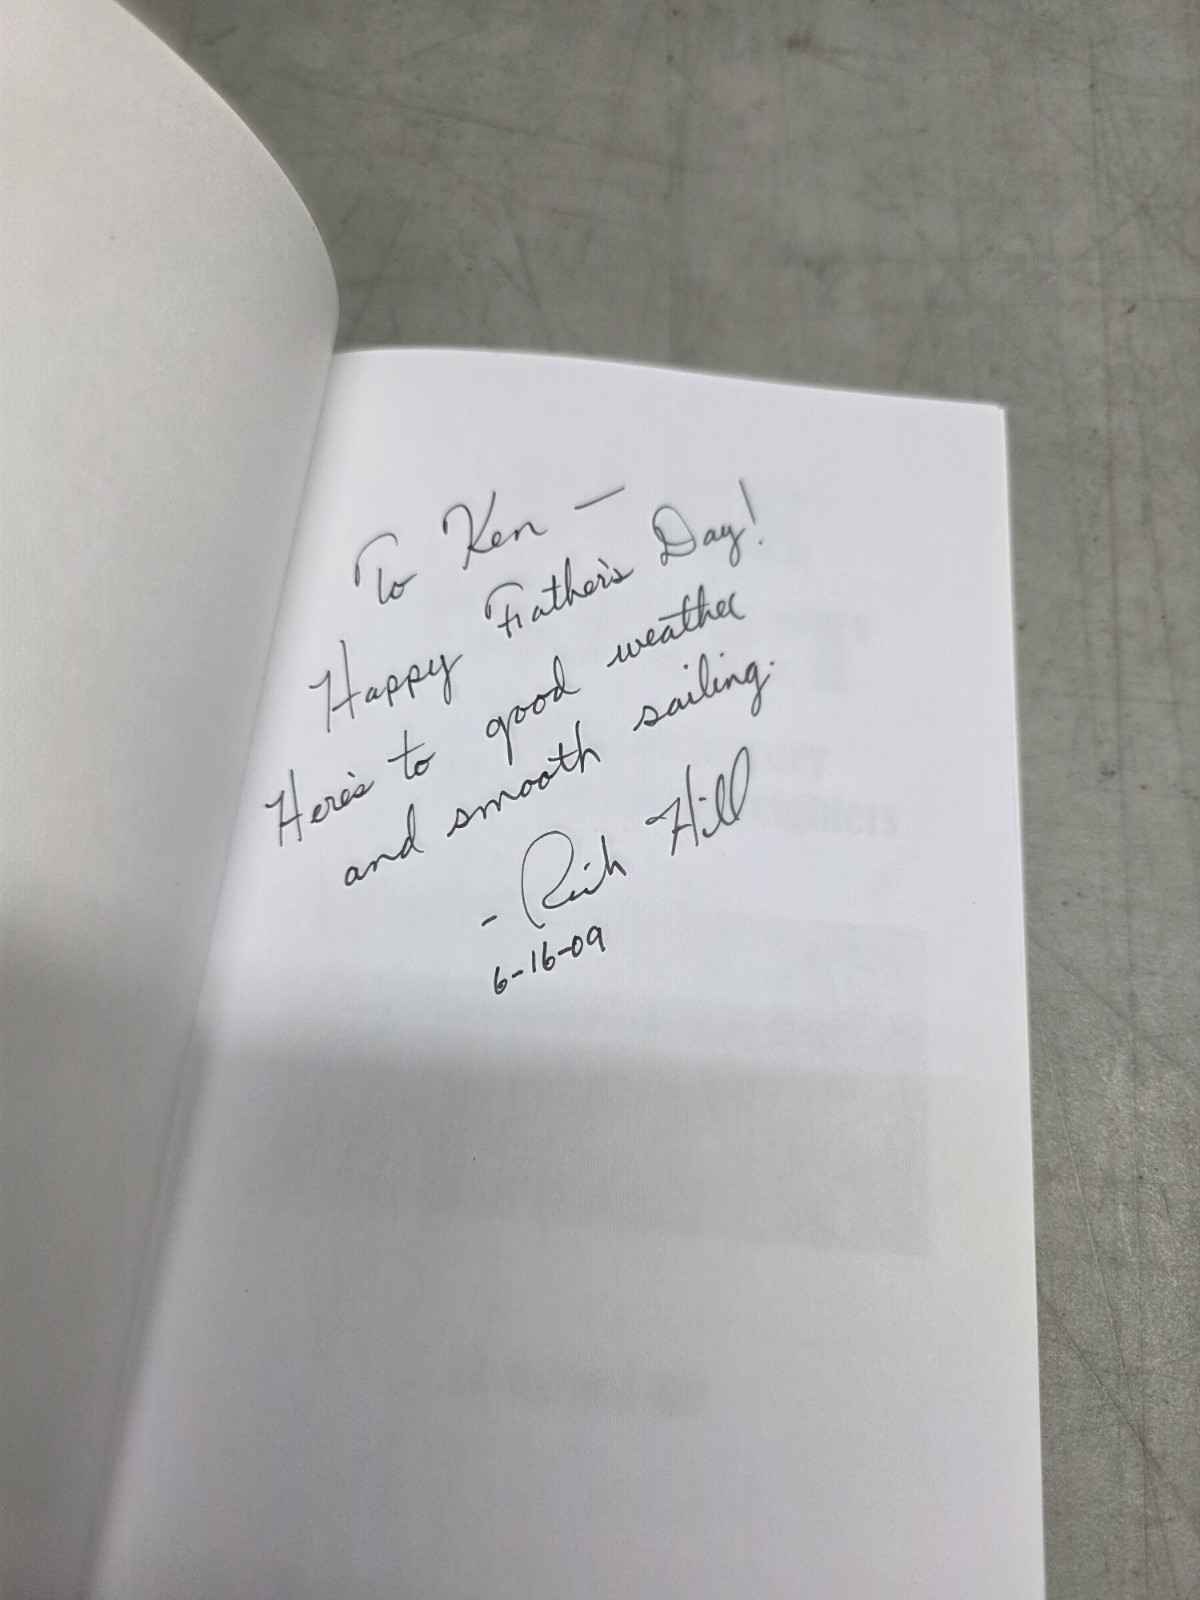 To Ken —
Happy Father's Day!
Here's to good weather
and smooth sailing.
- Rich Hill
6-16-09